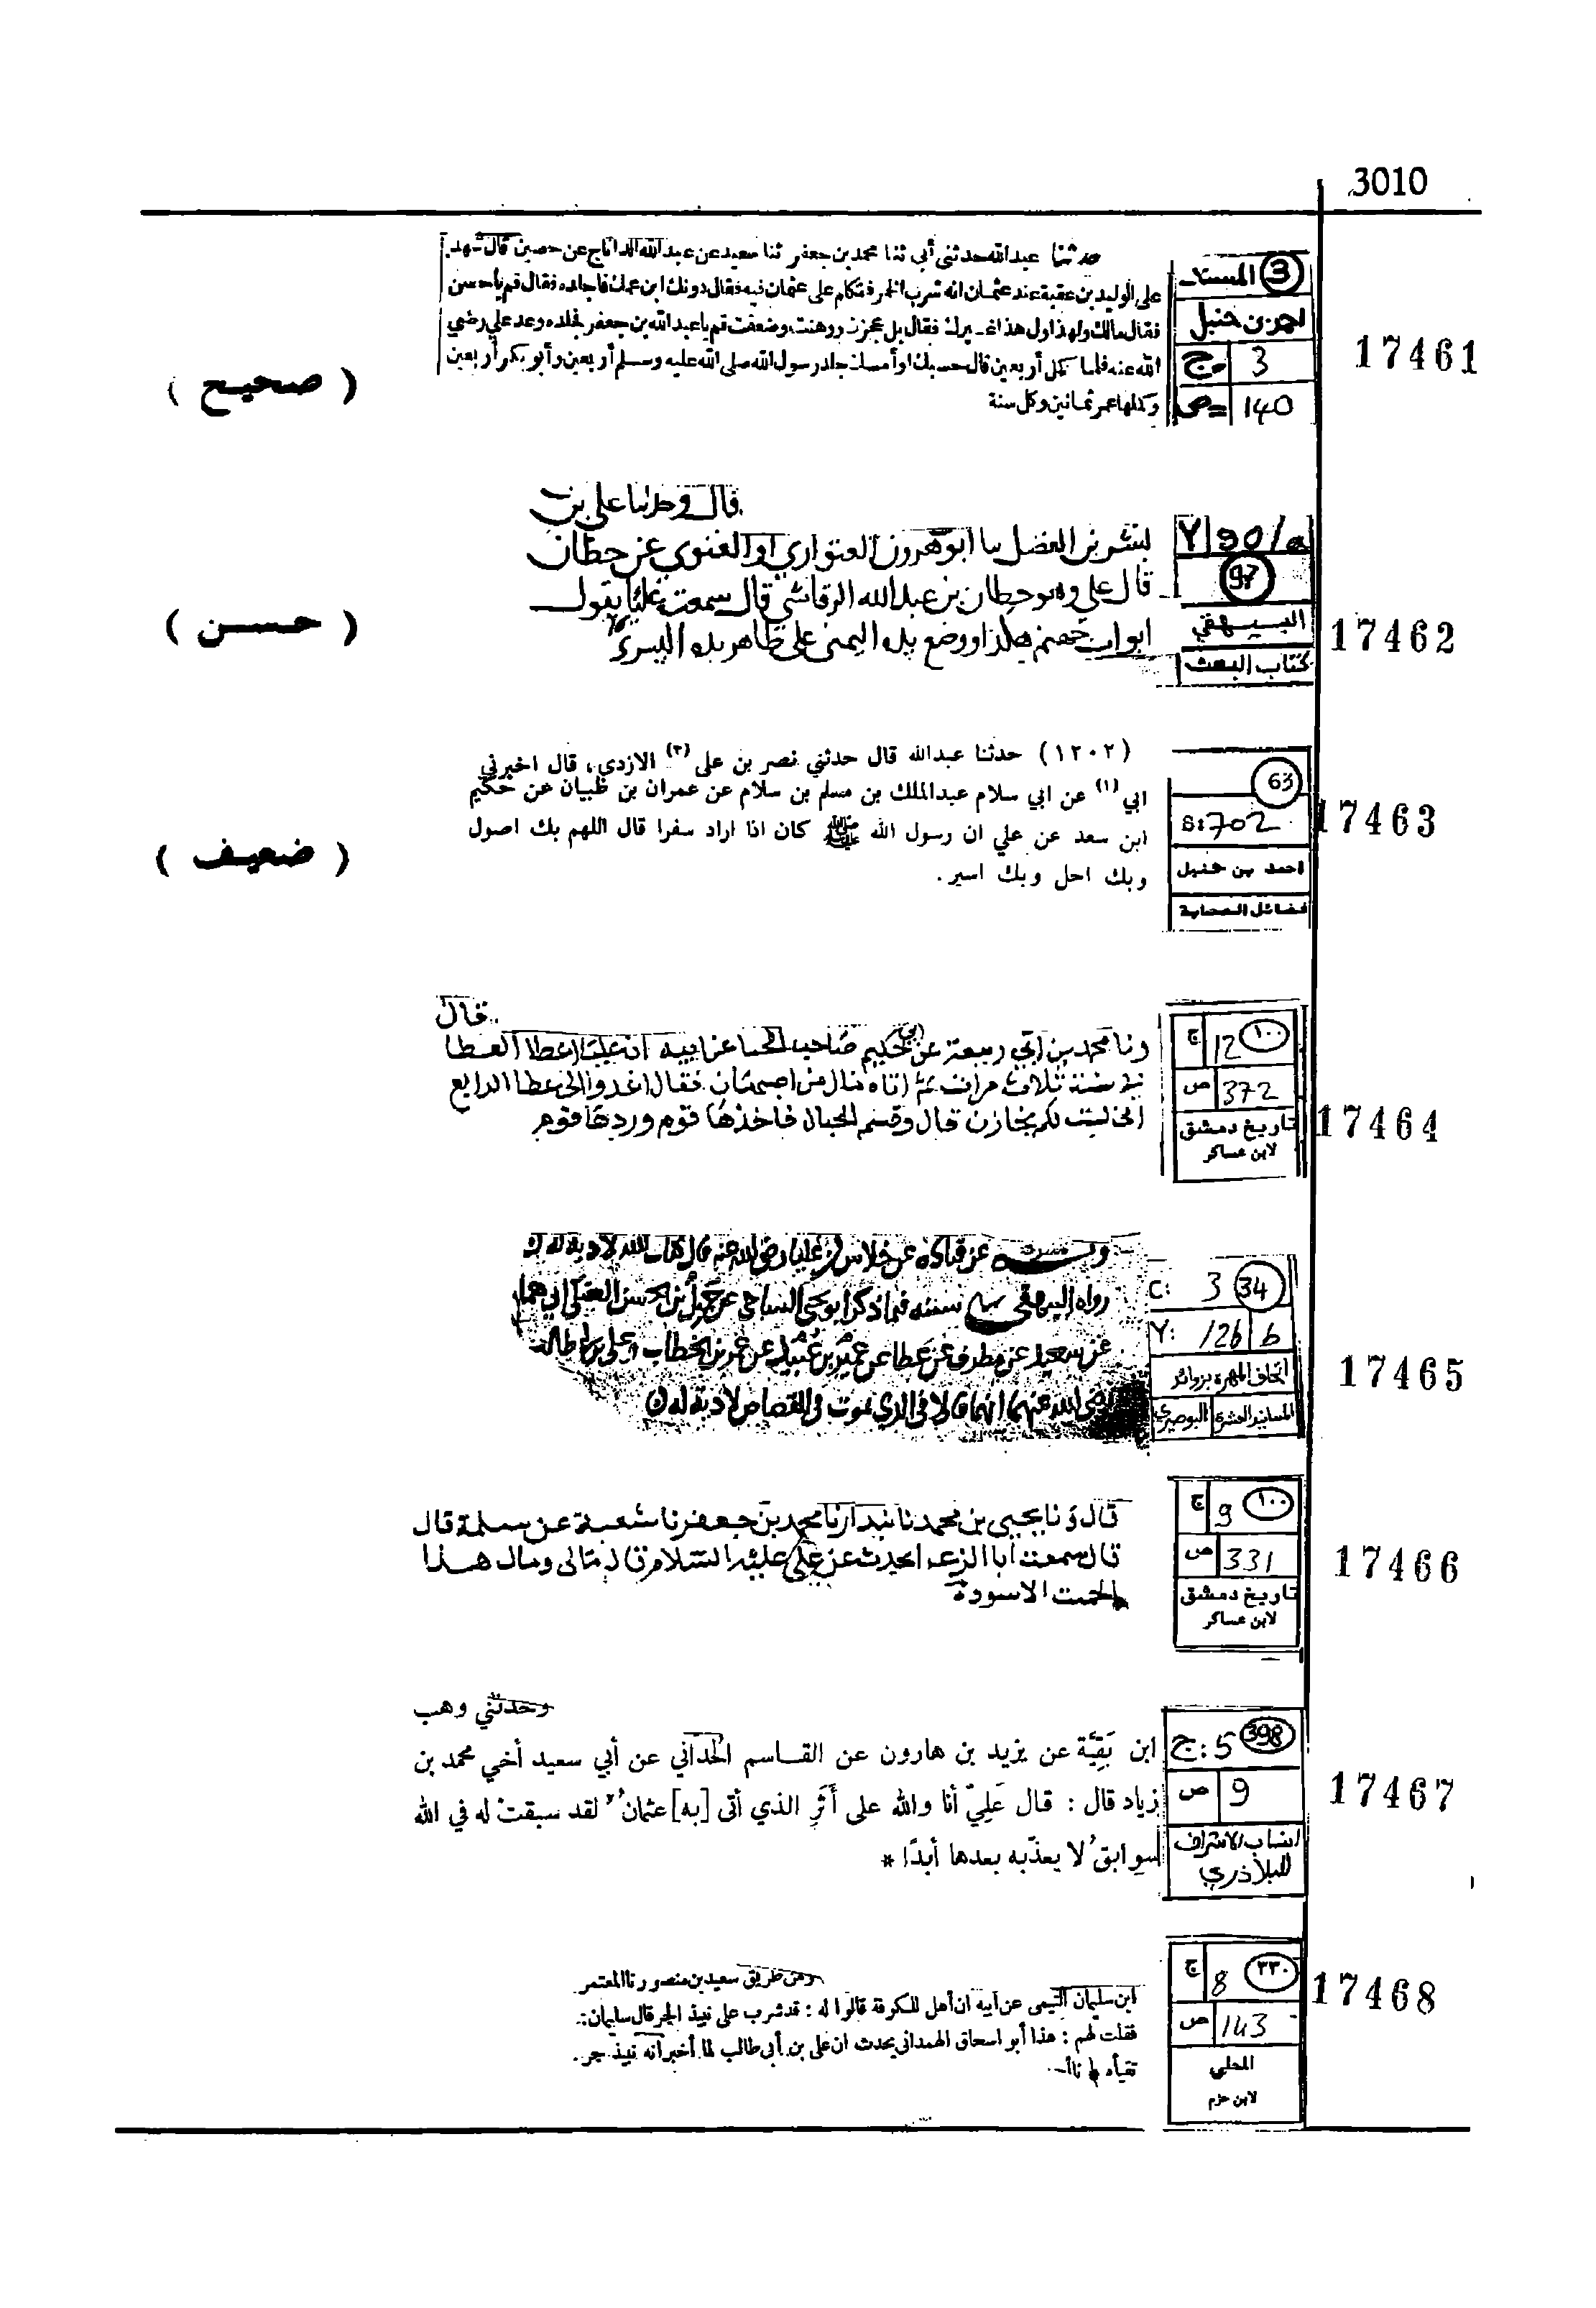 3010
حدثنا عبد الله حدثني أبي ثنا محمد بن جعفر ثنا سعيد عن عبد الله الداناج عن حصين قال شهد
على الوليد بن عقبة عند عثمان انه شرب الخمر فتكلم على عثمان فيه فقال دونك ابن عمك فاجلده فقال قم يا حسن
فقال مالك ولهذا ول هذا غيرك فقال بل عجزت ووهنت وضعفت قم يا عبد الله بن جعفر فجلده وعد علي رضي
الله عنه فلما كمل أربعين قال حسبك أو أمسك جلد رسول الله صلى الله عليه وسلم أربعين وأبو بكر أربعين
وكملها عمر ثمانين وكل سنة
3 المسند
احمد بن حنبل
ج 3
ص= 140
17461
( صحيح )
قال وحدثنا علي بن
بشر بن المفضل ابو هرون العنواري او الغنوي عن حطان
قال علي وهو حطان بن عبد الله الرقاشي قال سمعت عليا يقول
ابواب جهنم هكذا ووضع يده اليمنى على ظاهر يده اليسرى
Y 90/a
97
البيهقي
كتاب البعث
17462
( حسن )
(١٢٠٢) حدثنا عبدالله قال حدثني نصر بن على (٣) الازدي، قال اخبرني
ابي (١) عن ابي سلام عبدالملك بن مسلم بن سلام عن عمران بن ظبيان عن حكيم
ابن سعد عن علي ان رسول الله ﷺ كان اذا اراد سفرا قال اللهم بك اصول
وبك احل وبك اسير.
63
s:702
احمد بن حنبل
فضائل الصحابة
17463
( ضعيف )
قال
ونا محمد بن ابي ربيعة عن ابي حكيم صاحب الحنا عن ابيه ان عليا اعطا العطا
في سنة ثلاث مرات ثم اتاه مال من اصبهان فقال اغدوا الى عطا الرابع
اني لست لكم بخازن قال وقسم الحبال فاخذها قوم وردها قوم
١٠٠ 12 ج
372 ص
تاريخ دمشق
لابن عساكر
17464
عن قتادة عن خلاس ان عليا رضي الله عنه قال كتاب الله لا دية له
رواه البيهقي في سننه فيما ذكر ابو يحيى الساجي عن جميل بن الحسن العتكي ابي همام
عن سعيد عن مطرف عن عطا عن عبيد بن عمير عن عمر بن الخطاب وعلي بن ابي طالب
رضي الله عنهما انهما قالا في الذي يموت في القصاص لا دية له
C: 3 34
Y: 126 b
اتحاف المهرة بزوائد
المسانيد العشرة البوصيري
17465
قال ونا يحيى بن محمد نا بندار نا محمد بن جعفر نا شعبة عن سلمة قال
قال سمعت ابا الزعرا يحدث عن علي عليه السلام قال مالى ومال هذا
الحميت الاسود
١٠٠ 9 ج
331 ص
تاريخ دمشق
لابن عساكر
17466
وحدثني وهب
ابن بَقِيَّة عن يزيد بن هارون عن القاسم الحُدّاني عن أبي سعيد أخي محمد بن
زياد قال : قال عَلِيّ أنا والله على أَثَرِ الذي أتى [به] عثمانُ لقد سبقتْ له في الله
سوابقُ لا يعذّبه بعدها أبدًا *
398 ج: 5
9 ص
انساب الاشراف
للبلاذري
17467
ومن طريق سعيد بن منصور نا المعتمر
ابن سليمان التيمى عن أبيه ان أهل الكوفة قالوا له : قد شرب على نبيذ الجر قال سليمان:
فقلت لهم : هذا أبو اسحاق الهمدانى يحدث ان على بن أبى طالب لما أخبر أنه نبيذ جر
تقيأه
٣٣٠ 8 ج
143 ص
المحلى
لابن حزم
17468